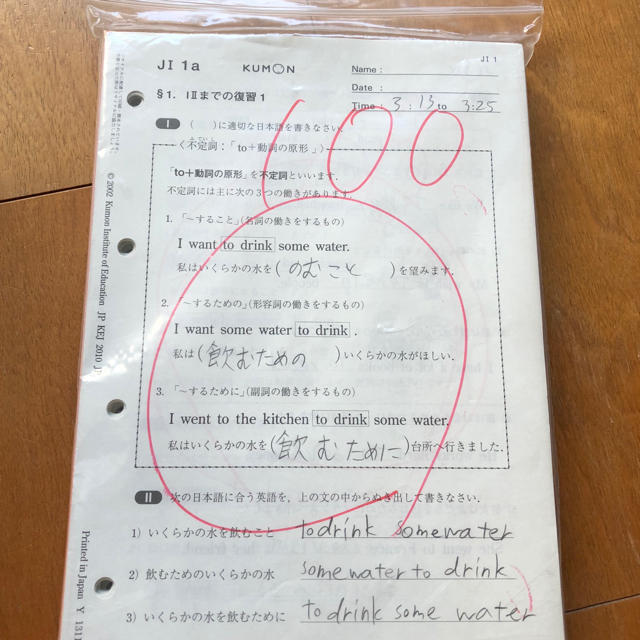 JI 1a KUMON
JI 1
Name :
Date :
Time : 3 : 13 to 3:25
§1. IⅡまでの復習1
100
I ( )に適切な日本語を書きなさい.
〈不定詞:「to+動詞の原形」〉
「to+動詞の原形」を不定詞といいます.
不定詞には主に次の3つの働きがあります.
1. 「~すること」(名詞の働きをするもの)
I want to drink some water.
私はいくらかの水を(のむこと)を望みます.
2. 「~するための」(形容詞の働きをするもの)
I want some water to drink .
私は(飲むための)いくらかの水がほしい.
3. 「~するために」(副詞の働きをするもの)
I went to the kitchen to drink some water.
私はいくらかの水を(飲むために)台所へ行きました.
II 次の日本語に合う英語を, 上の文の中からぬき出して書きなさい.
1) いくらかの水を飲むこと to drink somewater
2) 飲むためのいくらかの水 some water to drink
3) いくらかの水を飲むために to drink some water
© 2002 Kumon Institute of Education JP KEJ 2010 J
Printed in Japan Y 1311